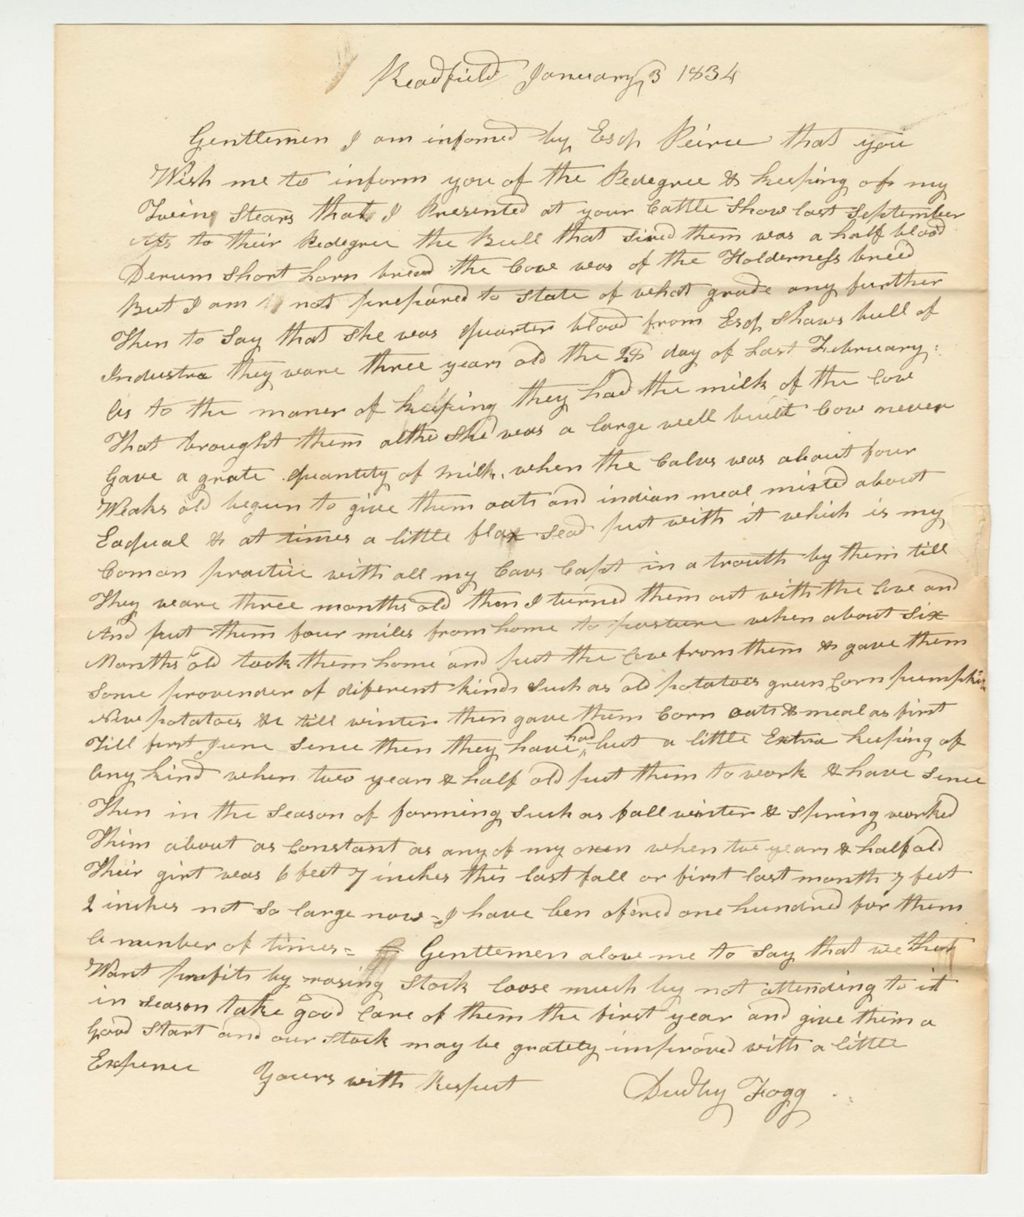 Readfield January 3 1834
Gentlemen I am informed by Esqr Peirce that you
Wish me to inform you of the Pedegree & keeping of my
Twins Stears that I Presented at your Cattle Show last September
As to their Pedegree the Bull that Sired them was a half blood
Derum Short horn breed the Cow was of the Holderness breed
But I am not prepared to State of what grade any further
Then to Say that She was quarter blood from Esqr Shaws bull of
Industra they ware three years old the 28 day of Last February:
As to the maner of keeping they had the milk of the Cow
That brought them altho She was a large well built Cow never
Gave a grate quantity of milk. when the Calvs was about four
Weaks old begun to give them oats and indian meal mixted about
Eaqual & at times a little flax Sead put with it which is my
Comon practice with all my Cavs Capt in a trouth by them till
They weare three months old then I turned them out with the Cow and
And put them four miles from home to pasture when about Six
Months old took them home and put the Cow from them & gave them
Some provender of diferent kinds Such as old potatoes green Corn pumpkins
New potatoes &c till winter then gave them Corn oats & meal as first
Till first June Since then they have had but a little Extra keeping of
Any kind when two years & half old put them to work & have Since
Then in the Season of farming Such as fall winter & Spring worked
Them about as Constant as any of my oxen when two years & half old
Their girt was 6 feet 7 inches this last fall or first last month 7 feet
2 inches not So large now = I have ben ofered one hundred for them
A number of times = Gentlemen alow me to Say that we that
Want profits by rasing Stock loose much by not attending to it
in Season take good Care of them the first year and give them a
Good Start and our Stock may be grately improved with a little
Expence Yours with Respect Dudley Fogg